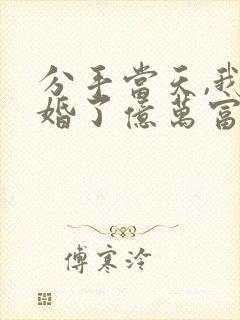 分手當天,我
婚了億萬富
傅寒泠